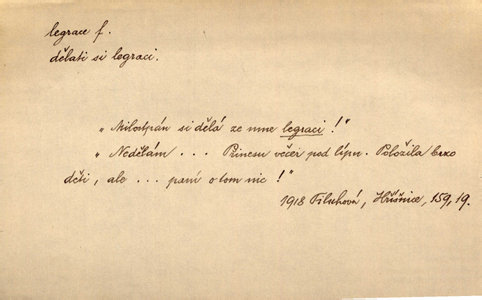 legrace f.
dělati si legraci.
„Milostpán si dělá ze mne legraci!"
„Nedělám . . . Přinesu večer pod lípu. Položila
děti, ale . . . paní o tom nic!"
1918 Tiluhová, Hříšnice, 159,19.